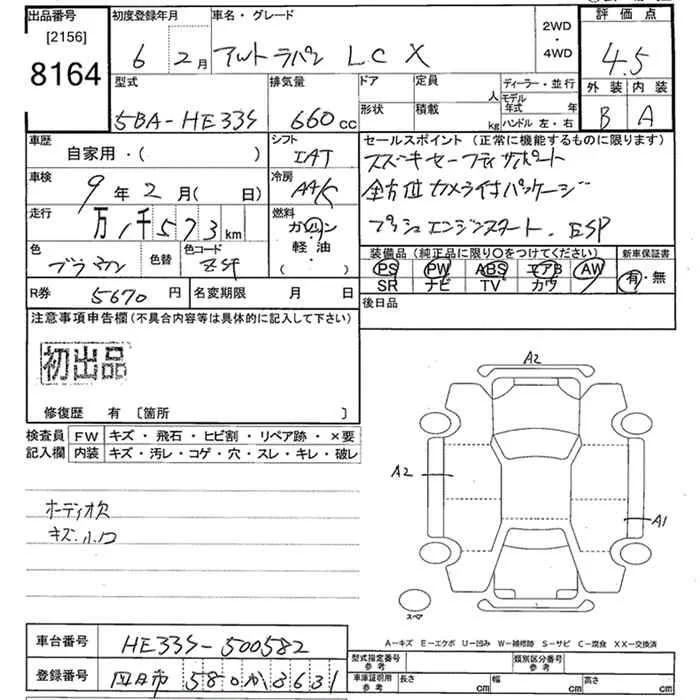 出品番号
[2156]
8164
初度登録年月
6 2月
車名・グレード
アルトラパン LC X
2WD
・
4WD
評価点
4.5
外装 内装
B A
型式
5BA-HE33S
排気量
660cc
ドア
形状
定員
人
積載
kg
ディーラー・並行
モデル年式 年
ハンドル 左・右
車歴
自家用・( )
シフト
IAT
セールスポイント (正常に機能するものに限ります)
スズキセーフティサポート
全方位カメラ付パッケージ
プッシュエンジンスタート. ESP
車検
9年2月( 日)
冷房
AAC
走行
万1千573km
燃料
ガソリン
軽油・
( )
色
色替
色コード
ZSF
装備品 (純正品に限り〇をつけてください)
PS PW ABS エアB AW
SR ナビ TV カワ
新車保証書
有・無
R券 5670円
名変期限 月 日
後日品
注意事項申告欄(不具合内容等は具体的に記入して下さい)
初出品
修復歴 有 [箇所 ]
検査員記入欄
FW キズ・飛石・ヒビ割・リペア跡・×要
内装 キズ・汚レ・コゲ・穴・スレ・キレ・破レ
A2
A2
A1
キズ.
スペア
A-キズ E-エクボ U-凹み W-補修跡 S-サビ C-腐食 XX-交換済
車台番号 HE33S-500582
登録番号 四日市 580か8631
型式指定番号 参考
類別区分番号 参考
車庫証明用 参考
長さ cm
幅 cm
高さ cm